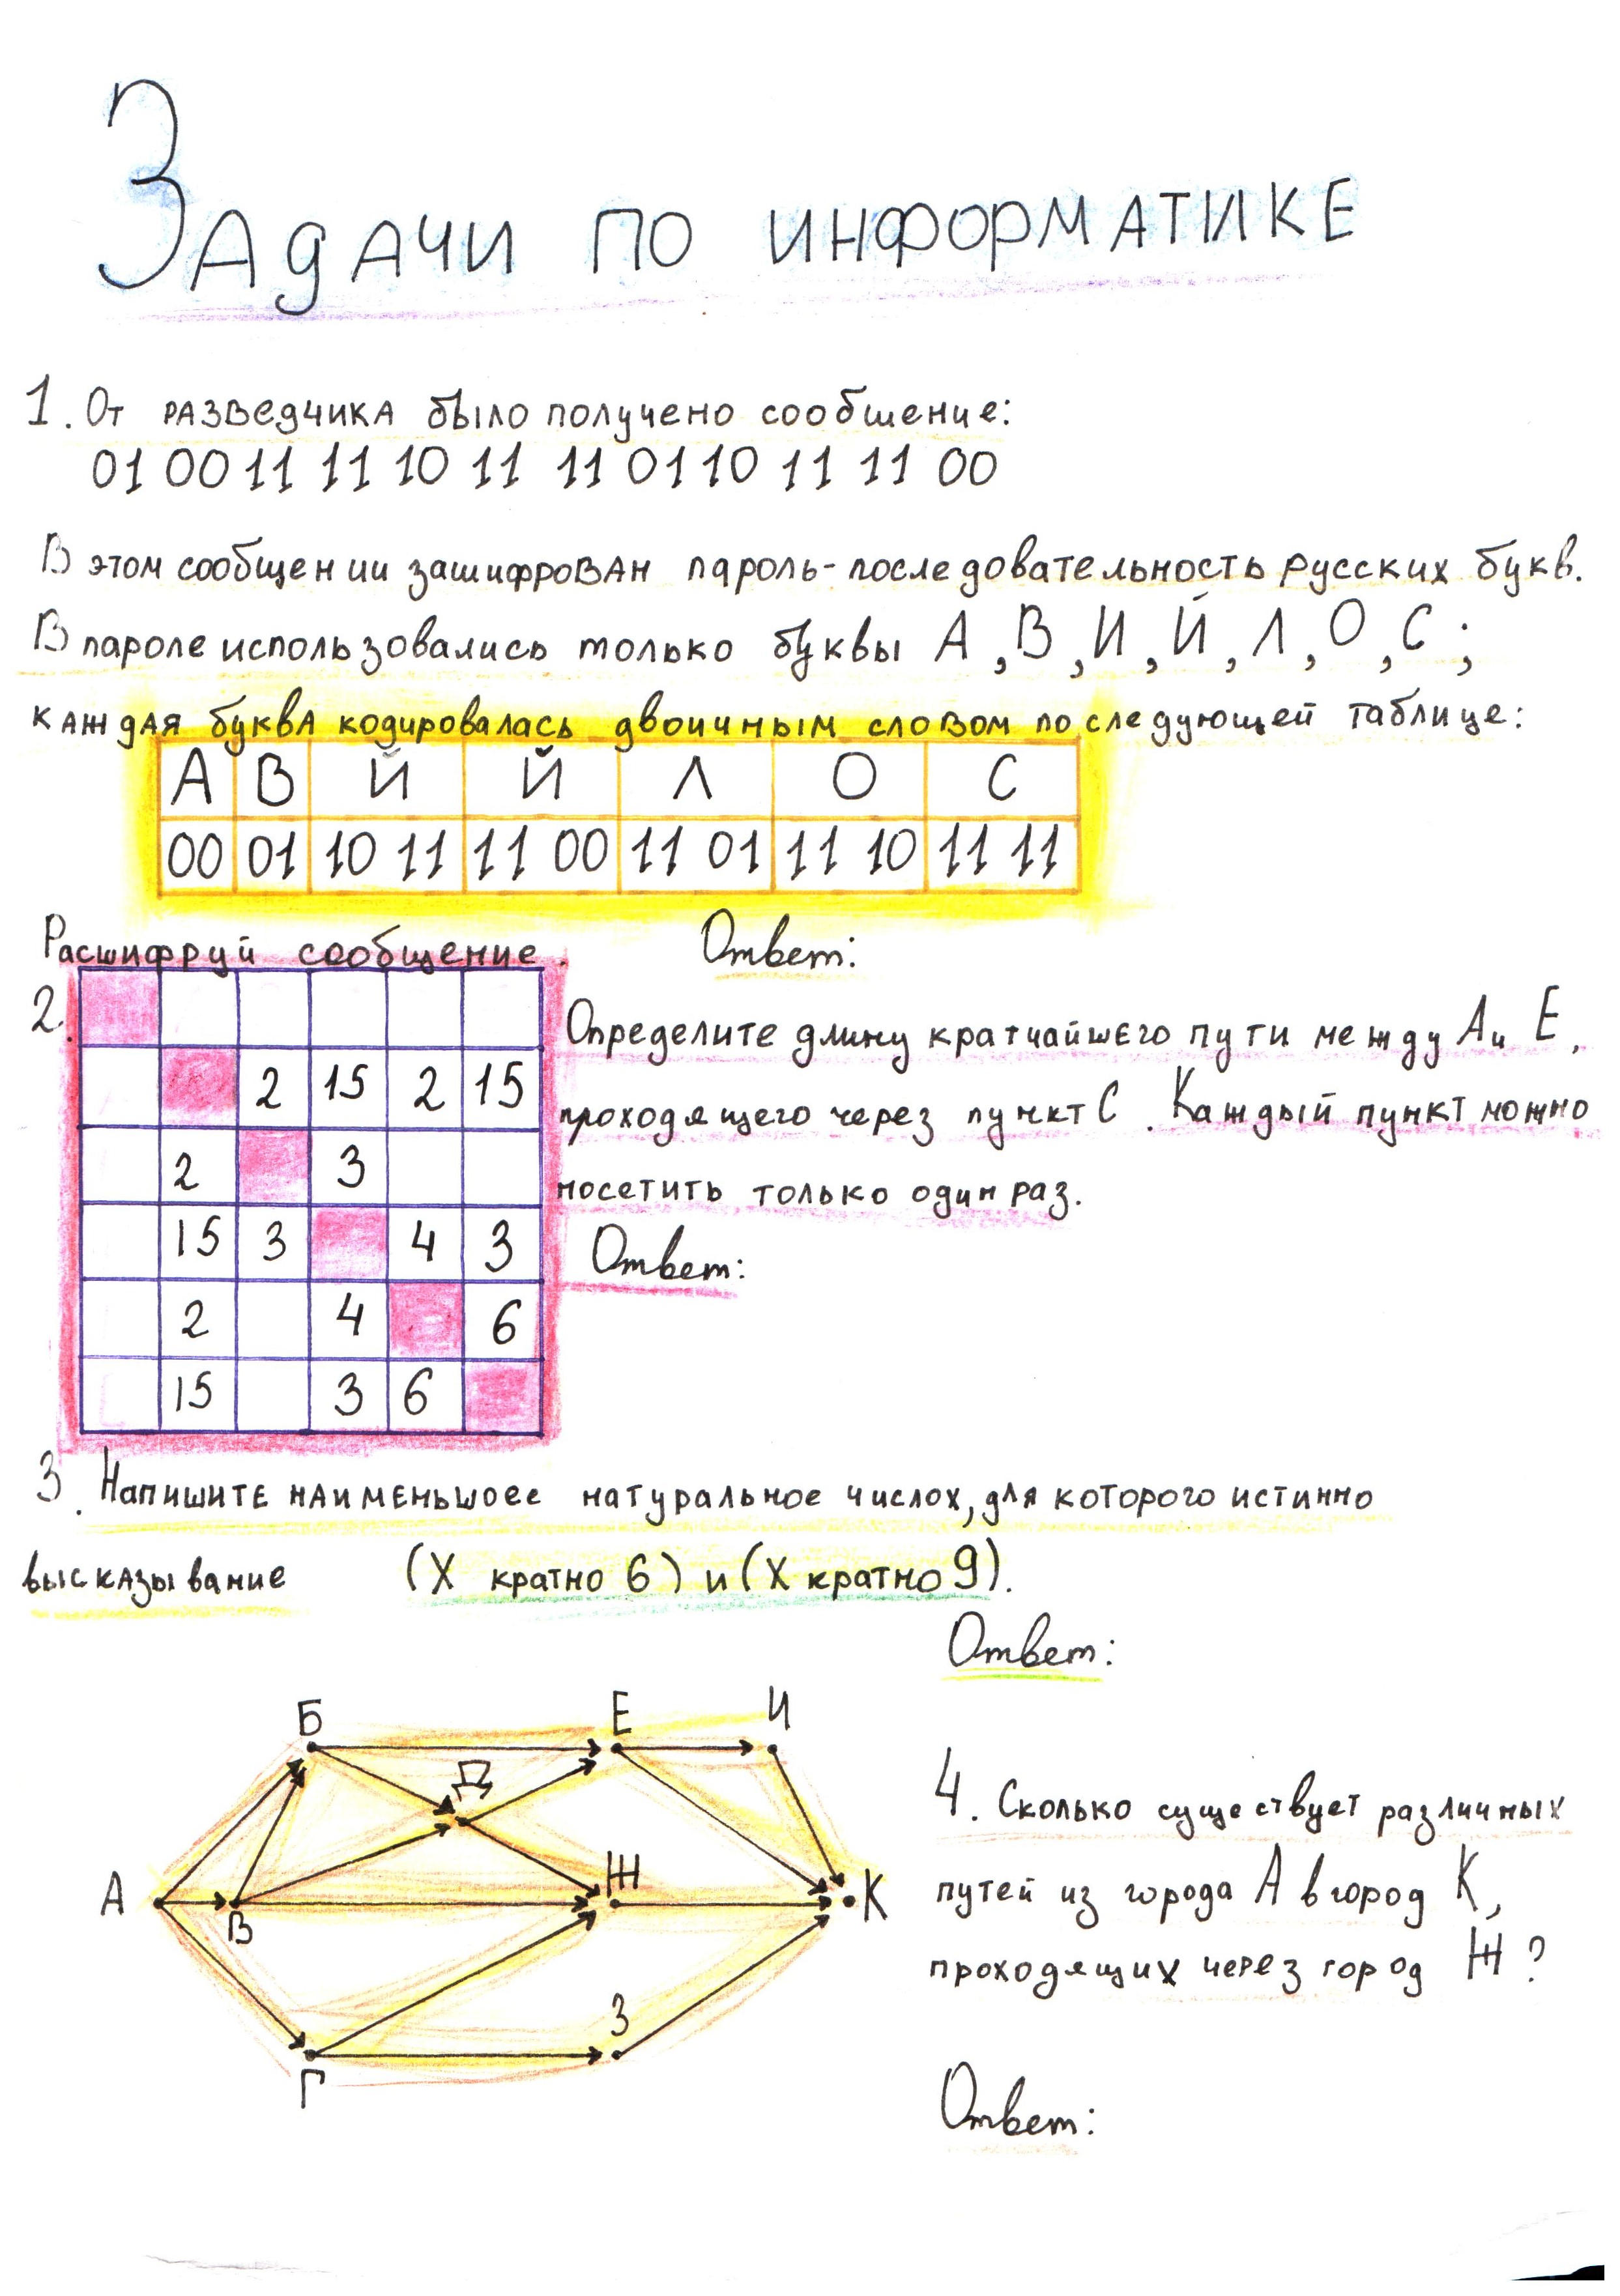 Задачи по информатике
1. От разведчика было получено сообшение:
01 00 11 11 10 11 11 01 10 11 11 00
В этом сообщении зашифрован пароль-последовательность русских букв.
В пароле использовались только буквы А, В, И, Й, Л, О, С;
каждая буква кодировалась двоичным словом по следующей таблице:
А В Й Й Л О С
00 01 10 11 11 00 11 01 11 10 11 11
Расшифруй сообщение. Ответ:
2.
2 15 2 15
2 3
15 3 4 3
2 4 6
15 3 6
Определите длину кратчайшего пути между А и Е,
проходящего через пункт С. Каждый пункт можно
посетить только один раз.
Ответ:
3. Напишите наименьшоее натуральное число х, для которого истинно
высказывание (Х кратно 6) и (Х кратно 9).
Ответ:
Б Е И
Д
А В Ж К
Г З
4. Сколько существует различных
путей из города А в город К,
проходящих через город Ж?
Ответ: